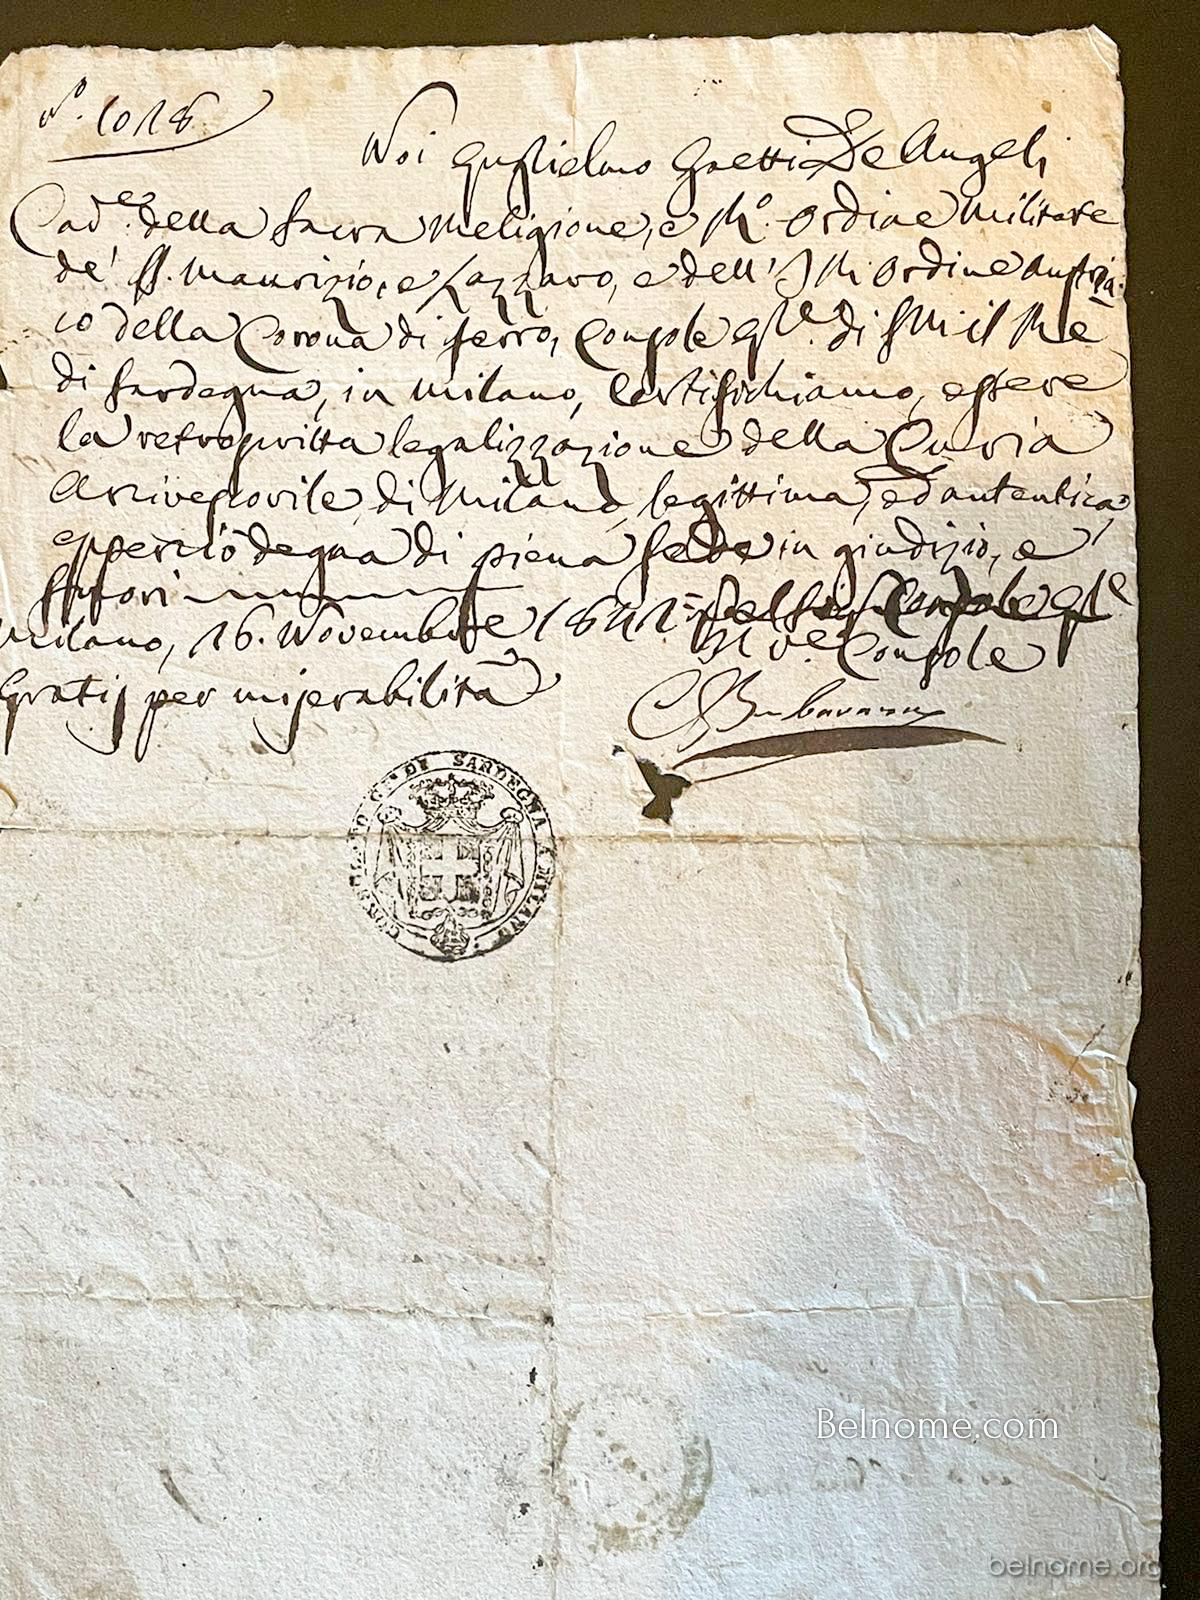 N.° 1018
Noi Guglielmo Gaetti De Angeli
Cav.e della Sacra Religione, e R.° Ordine Militare
de' SS. Maurizio, e Lazzaro, e dell' I. R. Ordine Austria-
co della Corona di ferro, Console G.le di S. M. il Re
di Sardegna, in Milano, Certifichiamo, essere
la retroscritta legalizzazione della Curia
Arcivescovile di Milano, legittima, ed autentica
e perciò degna di piena fede in giudizio, e
fuori
Milano, 16. Novembre 1841. Console G.le
Gratis per miserabilità
Il V.e Console
CONSOLATO GE. DI SARDEGNA A MILANO
Belnome.com
belnome.org